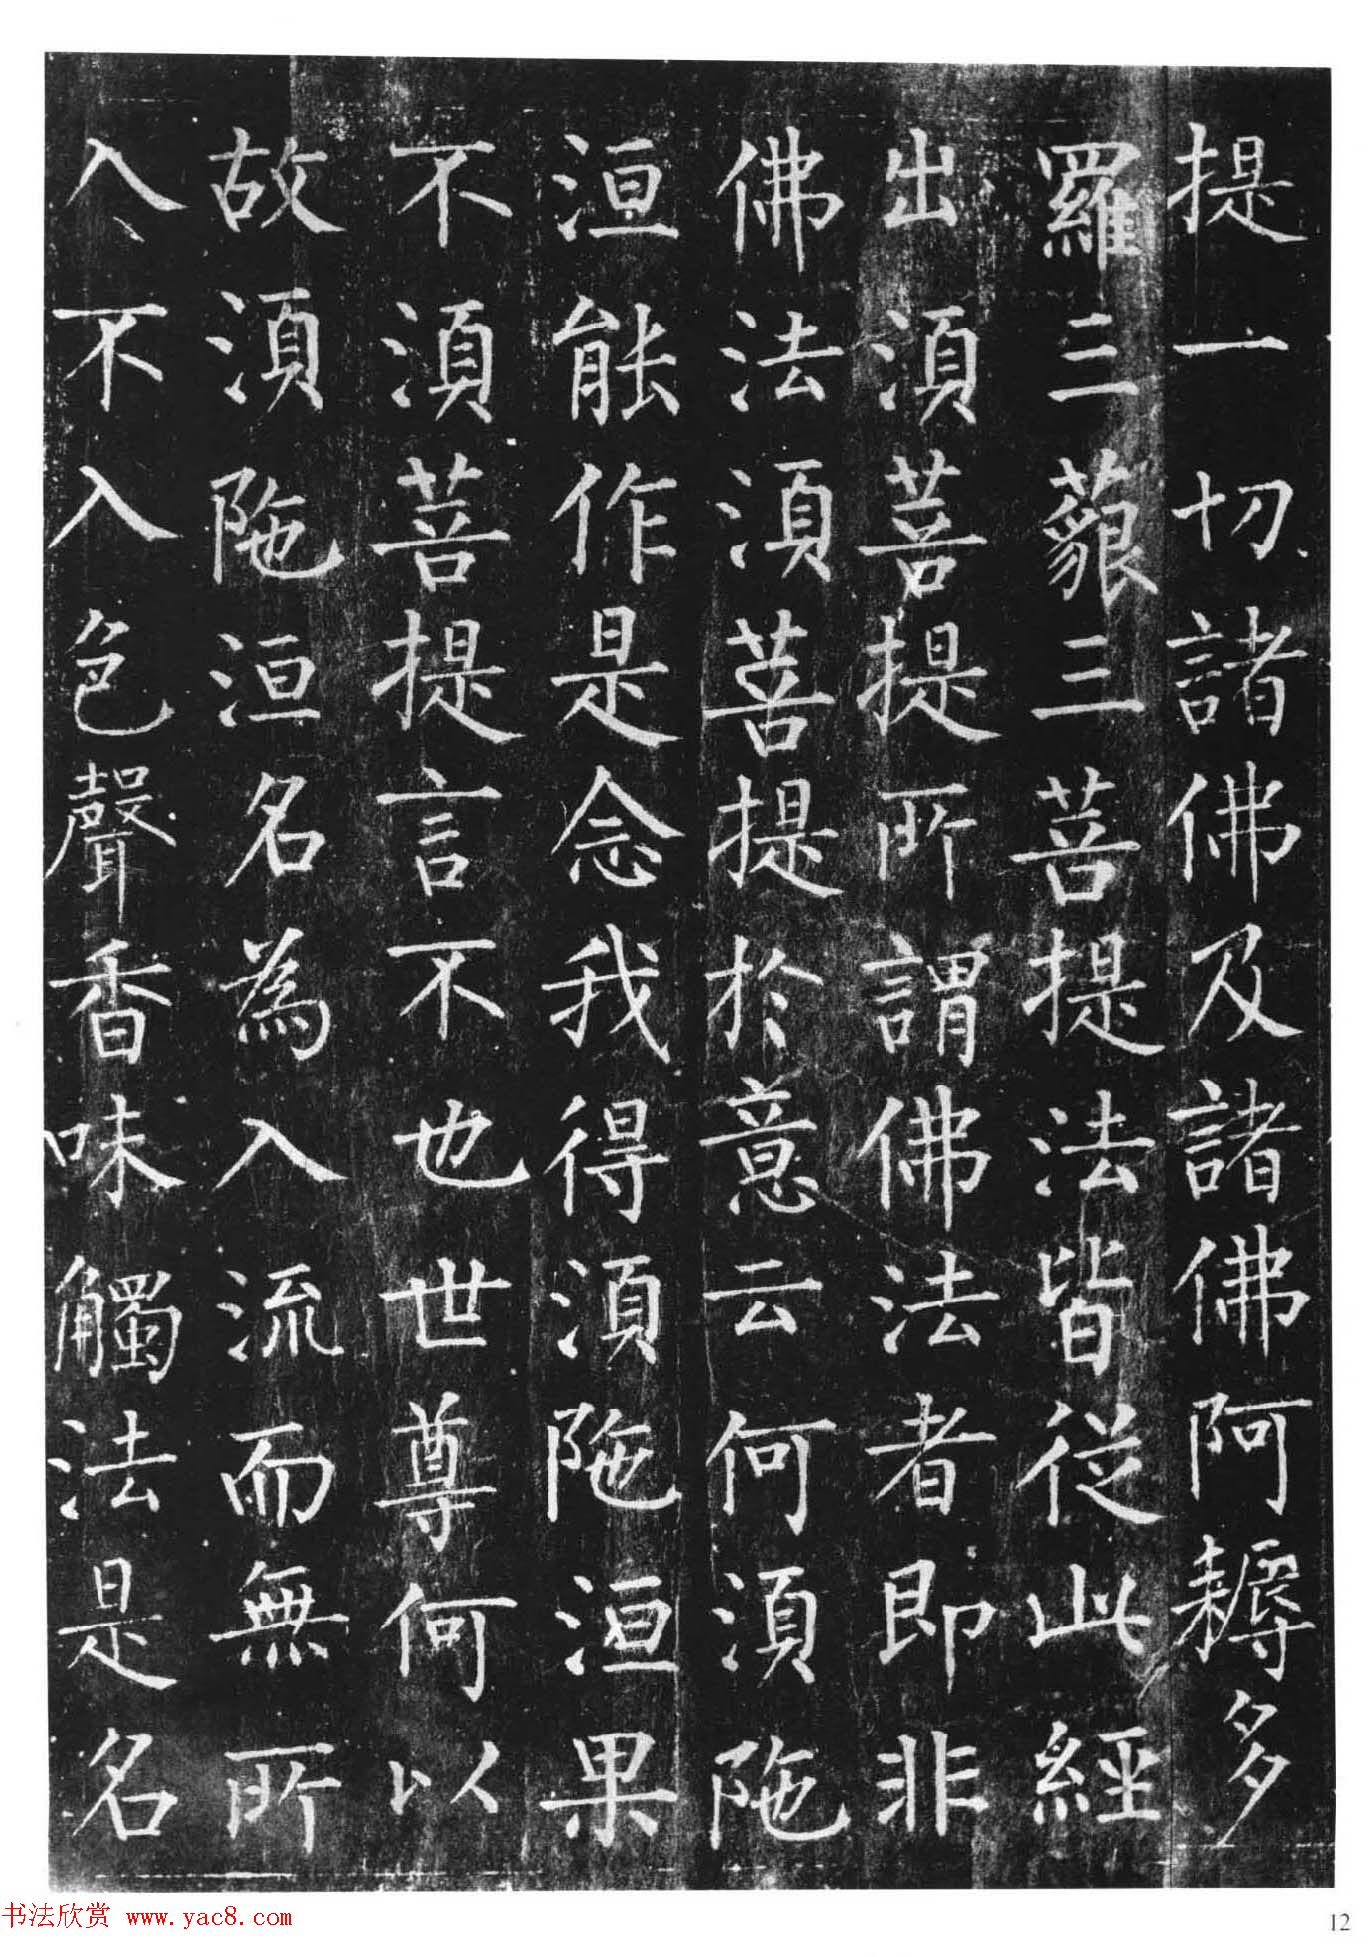 提一切諸佛及諸佛阿耨多
羅三藐三菩提法皆從此經
出須菩提所謂佛法者即非
佛法須菩提於意云何須陁
洹能作是念我得須陁洹果
不須菩提言不也世尊何以
故須陁洹名為入流而無所
入不入色聲香味觸法是名
书法欣赏 www.yac8.com
12